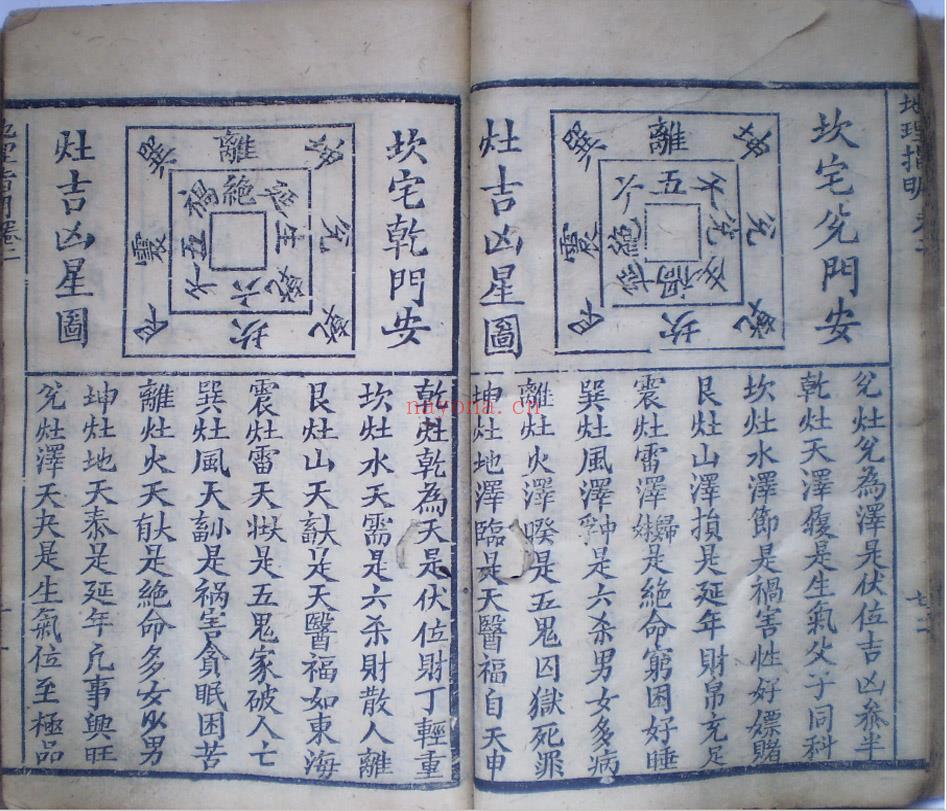 地理指明
坎宅兌門安
灶吉凶星圖
離
坤
兌
乾
坎
艮
震
巽
五
天
茂
生
禍
延
絕
六
兌灶兌為澤是伏位吉凶參半
乾灶天澤履是生氣父子同科
坎灶水澤節是禍害性好嫖賭
艮灶山澤損是延年財帛充足
震灶雷澤歸妹是絕命窮困好睡
巽灶風澤中孚是六杀男女多病
離灶火澤睽是五鬼囚獄死罪
坤灶地澤臨是天醫福自天申
坎宅乾門安
灶吉凶星圖
離
坤
兌
乾
坎
艮
震
巽
絕
延
生
六
天
五
禍
乾灶乾為天是伏位財丁輕重
坎灶水天需是六杀財散人離
艮灶山天大畜是天醫福如東海
震灶雷天大壯是五鬼家破人亡
巽灶風天小畜是禍害貪眠困苦
離灶火天大有是絕命多女少男
坤灶地天泰是延年亢事興旺
兌灶澤天夬是生氣位至極品
nayona.cn